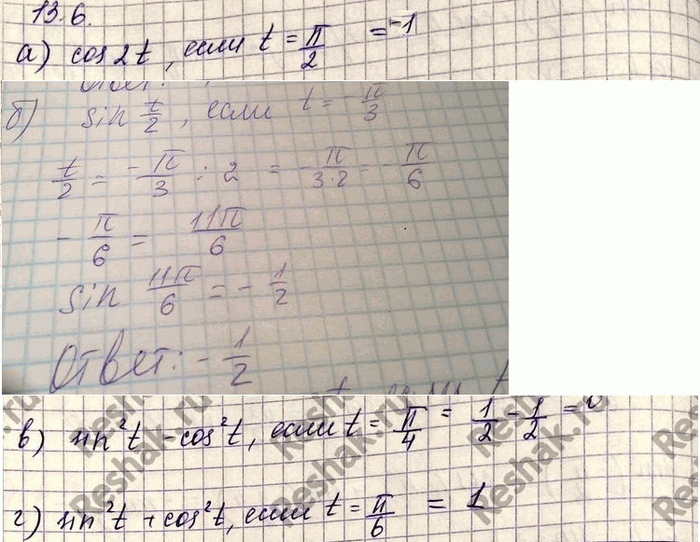 13.6.
а) cos 2t, если t = π/2 = -1
Ответ:
б) sin t/2, если t = - π/3
t/2 = - π/3 : 2 = - π/(3·2) = - π/6
- π/6 = 11π/6
sin 11π/6 = - 1/2
Ответ: - 1/2
в) sin²t - cos²t, если t = π/4 = 1/2 - 1/2 = 0
г) sin²t + cos²t, если t = π/6 = 1
Reshak.ru
Reshak.ru
Reshak.ru